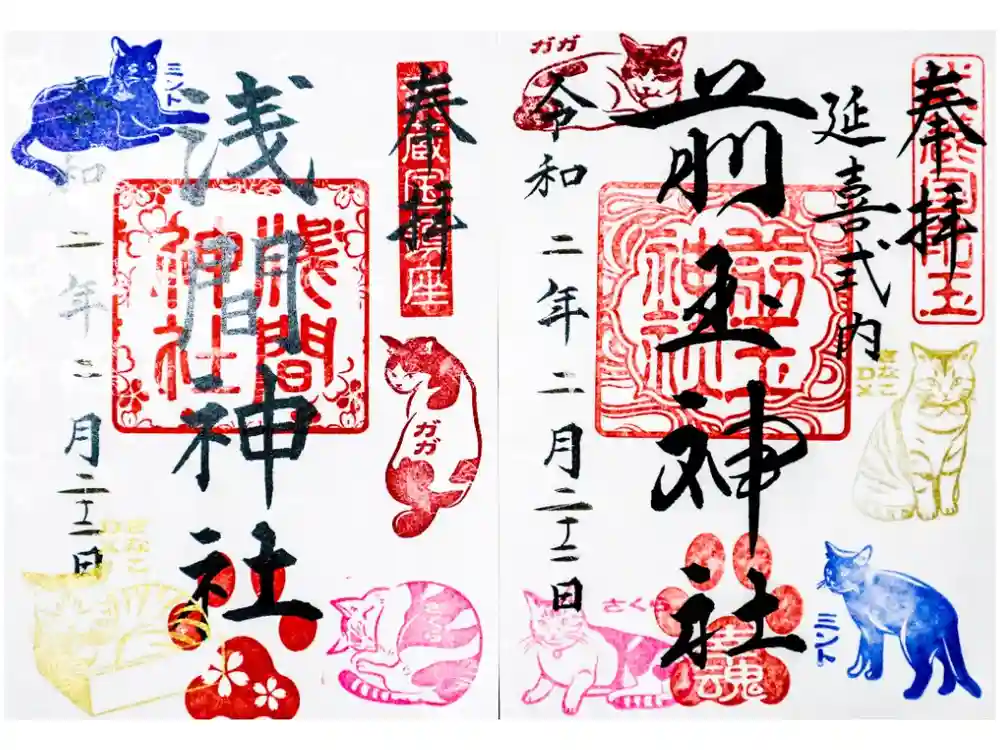 奉拝
延喜式内
前玉神社
令和二年二月二十二日
前玉神社
幸魂
ガガ
きなこ
ミント
さくら
奉拝
浅間神社
令和二年二月二十二日
浅間神社
ミント
ガガ
きなこ
さくら